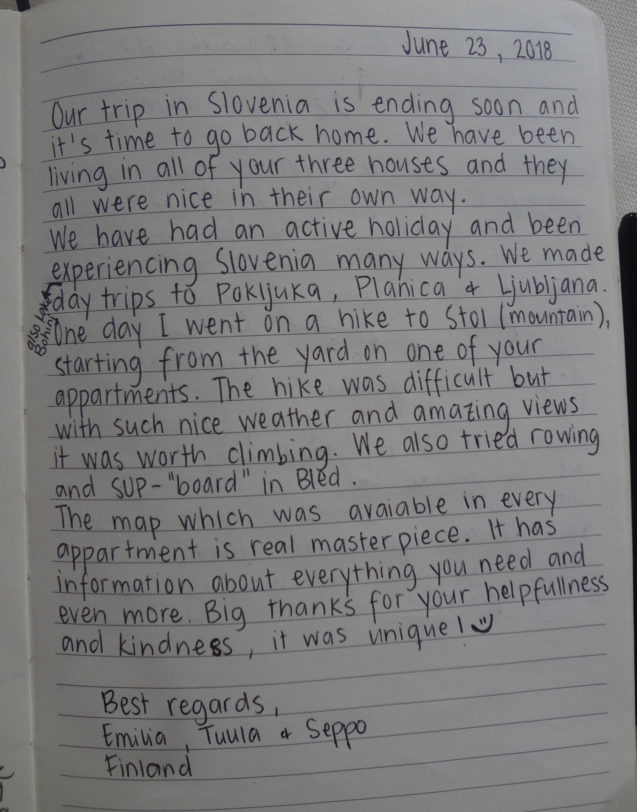 June 23, 2018
Our trip in Slovenia is ending soon and
it's time to go back home. We have been
living in all of your three houses and they
all were nice in their own way.
We have had an active holiday and been
experiencing Slovenia many ways. We made
day trips to Pokljuka, Planica & Ljubljana.
also Lake
Bohinj
One day I went on a hike to Stol (mountain),
starting from the yard on one of your
appartments. The hike was difficult but
with such nice weather and amazing views
it was worth climbing. We also tried rowing
and SUP-"board" in Bled.
The map which was avaiable in every
appartment is real masterpiece. It has
information about everything you need and
even more. Big thanks for your helpfullness
and kindness, it was unique!
Best regards,
Emilia, Tuula & Seppo
Finland